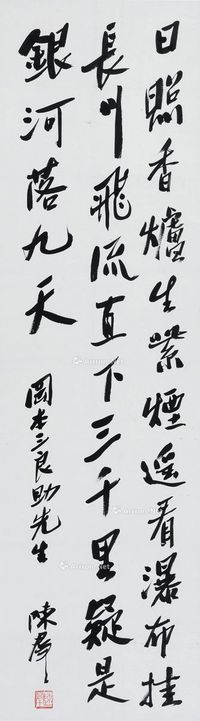 日照香爐生紫煙遥看瀑布挂
長川飛流直下三千里疑是
銀河落九天
岡本三良助先生
陳